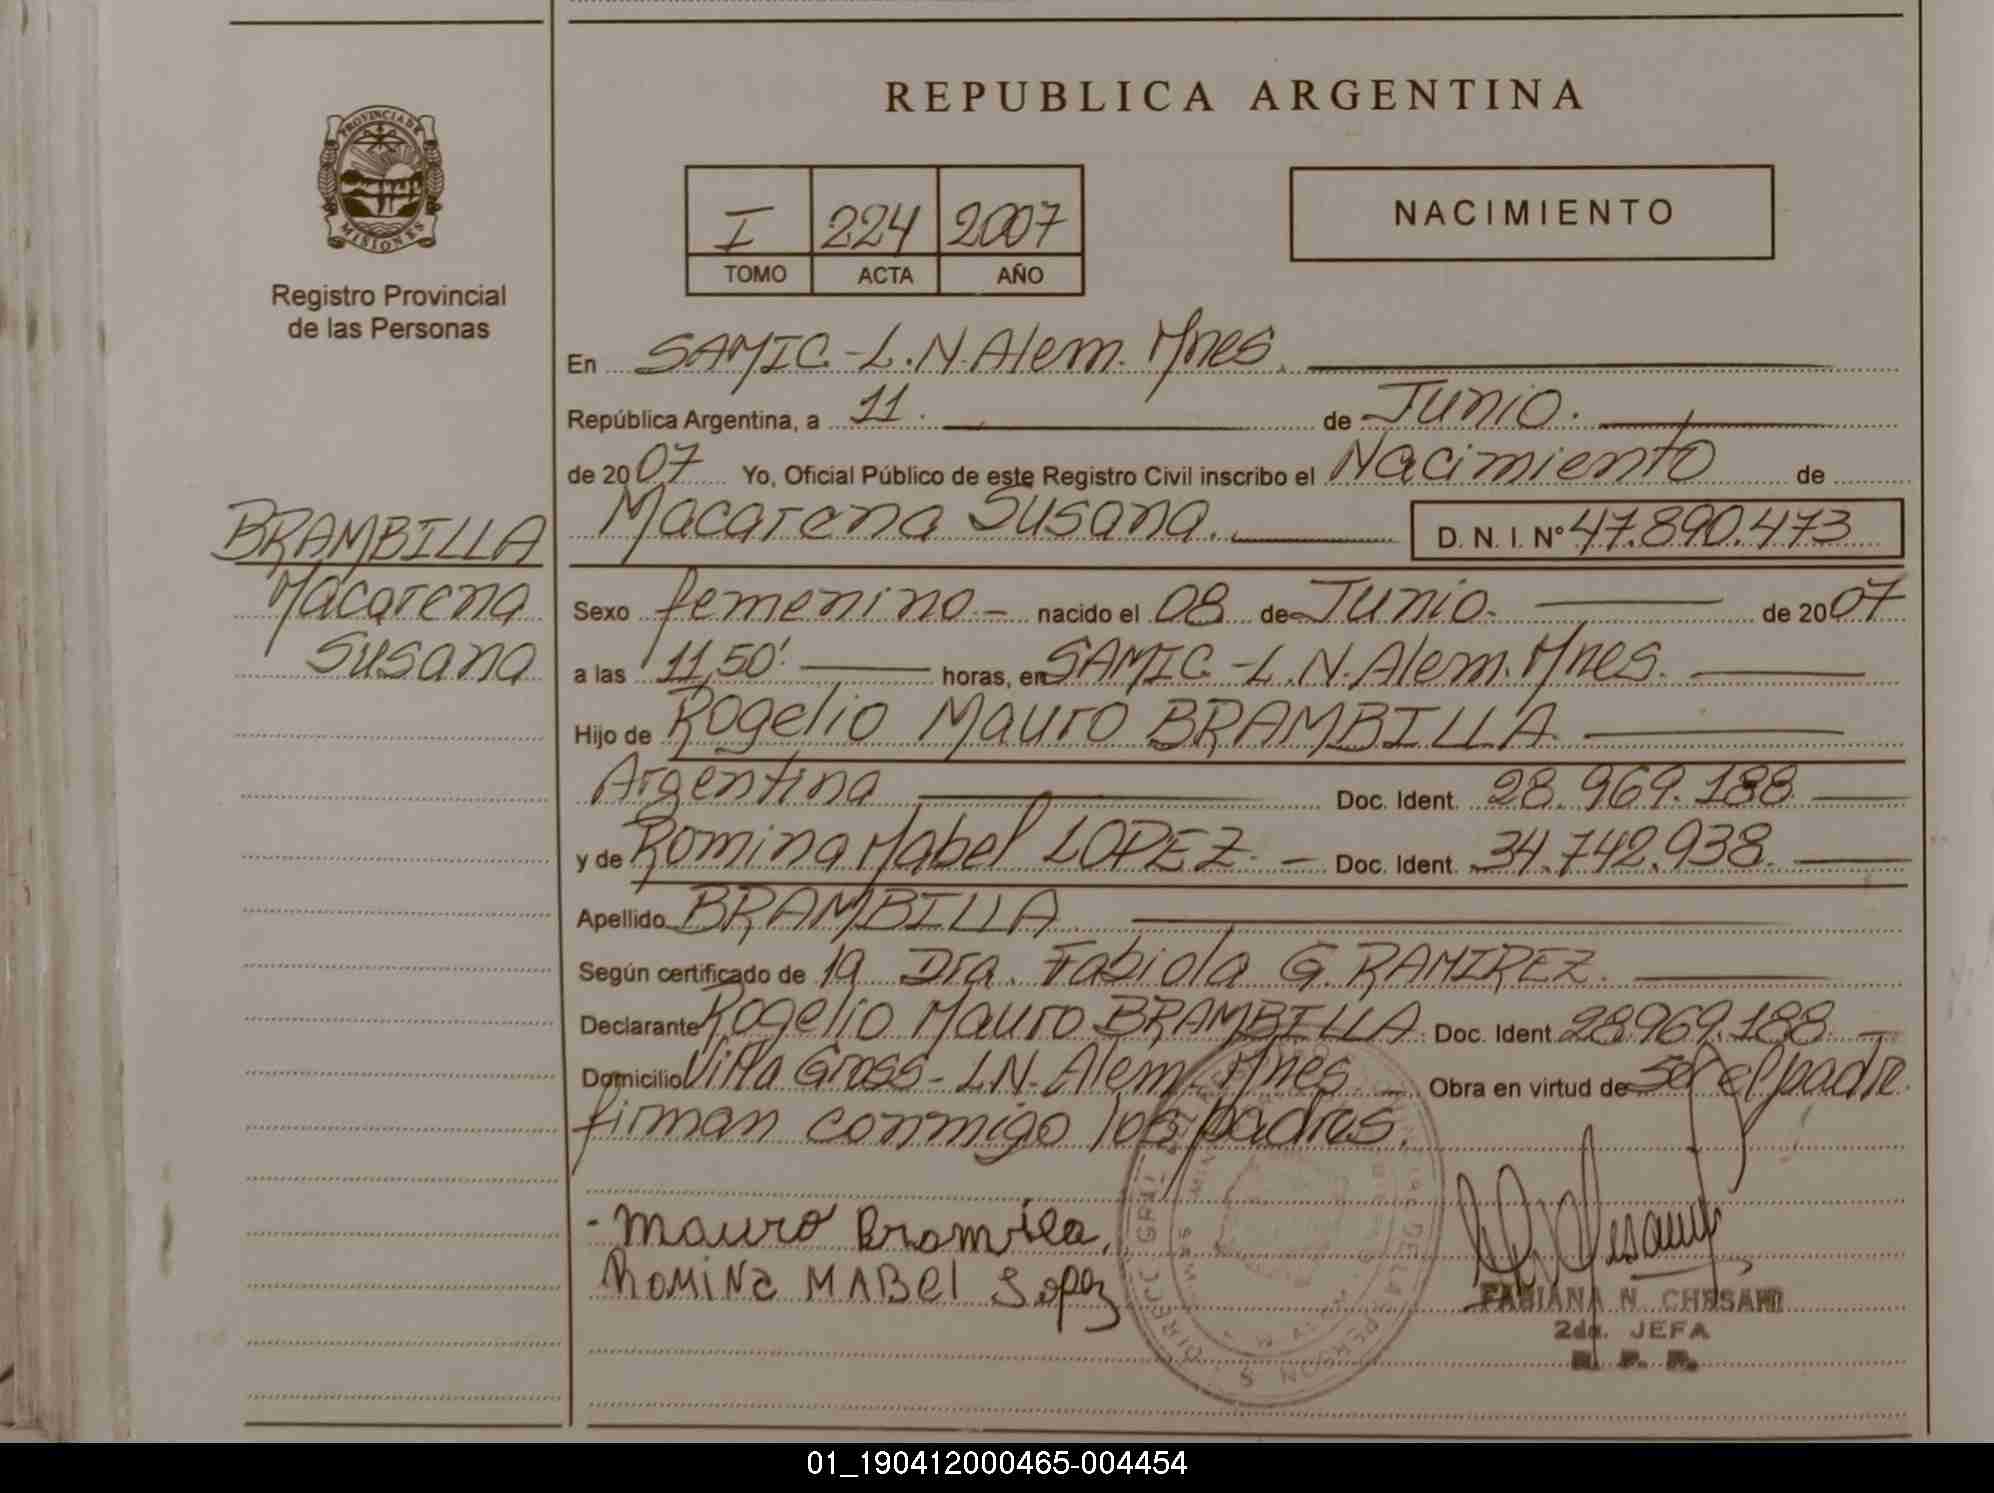 REPUBLICA ARGENTINA
PROVINCIA DE
MISIONES
Registro Provincial
de las Personas
I 224 2007
TOMO ACTA AÑO
NACIMIENTO
En SAMIC - L. N. Alem. Mnes.
República Argentina, a 11. de Junio.
de 2007 Yo, Oficial Público de este Registro Civil inscribo el Nacimiento de
Macarena Susana. D. N. I. Nº 47.890.473
BRAMBILLA
Macarena
Susana
Sexo femenino - nacido el 08 de Junio. de 2007
a las 11,50' horas, en SAMIC - L. N. Alem. Mnes.
Hijo de Rogelio Mauro BRAMBILLA
Argentina Doc. Ident. 28.969.188
y de Romina Mabel LOPEZ. - Doc. Ident. 34.742.938.
Apellido BRAMBILLA
Según certificado de la Dra. Fabiola G. RAMIREZ.
Declarante Rogelio Mauro BRAMBILLA. Doc. Ident 28.969.188 -
Domicilio Villa Gross - L.N. Alem. Mnes. Obra en virtud de ser el padre.
firman conmigo los padres.
- Mauro Bramvila.
ROMINa MABEl Lopez
FABIANA N. CHESANI
2da. JEFA
R. P. P.
01_190412000465-004454